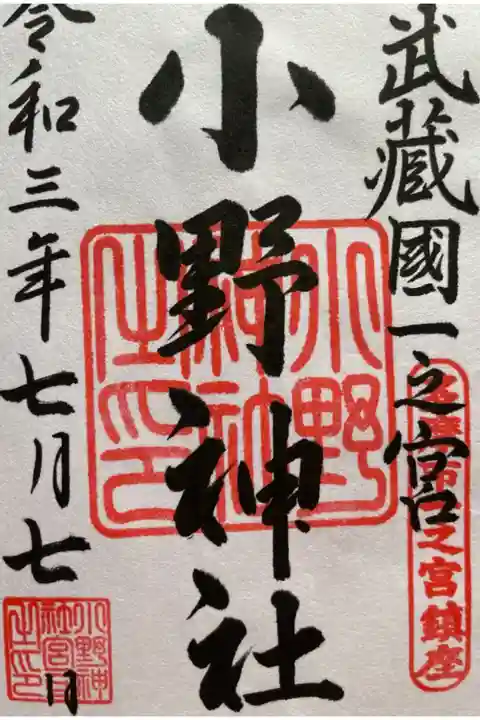 武藏國一之宮
多摩市一之宮鎮座
小野神社
小野神社之印
令和三年七月七日
小野神社宮司之印